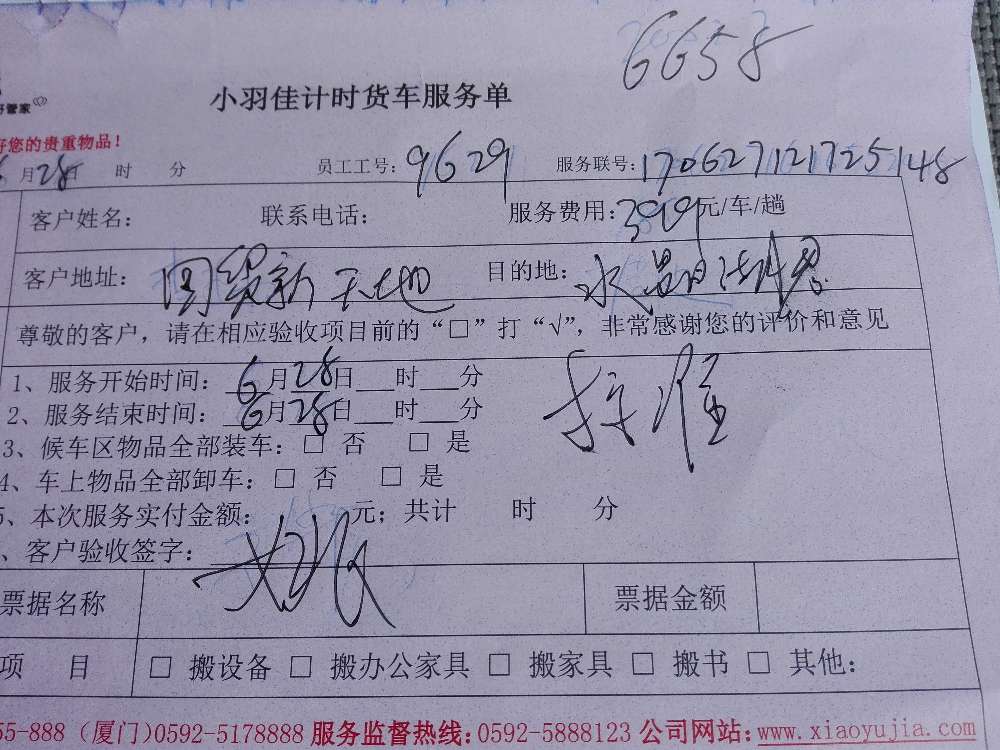 6658
管家
小羽佳计时货车服务单
好您的贵重物品！
6月28日 时 分 员工工号：9629 服务联号：170627121725148
客户姓名： 联系电话： 服务费用：399元/车/趟
客户地址：国贸新天地 目的地：水晶湖
尊敬的客户，请在相应验收项目前的“□”打“√”，非常感谢您的评价和意见
1、服务开始时间：6月28日___时___分
2、服务结束时间：6月28日___时___分
3、候车区物品全部装车：□ 否 □ 是
4、车上物品全部卸车：□ 否 □ 是
5、本次服务实付金额： 元；共计 时 分
、客户验收签字：
票据名称 票据金额
项 目 □ 搬设备 □ 搬办公家具 □ 搬家具 □ 搬书 □ 其他：
55-888（厦门)0592-5178888 服务监督热线：0592-5888123 公司网站：www.xiaoyujia.com